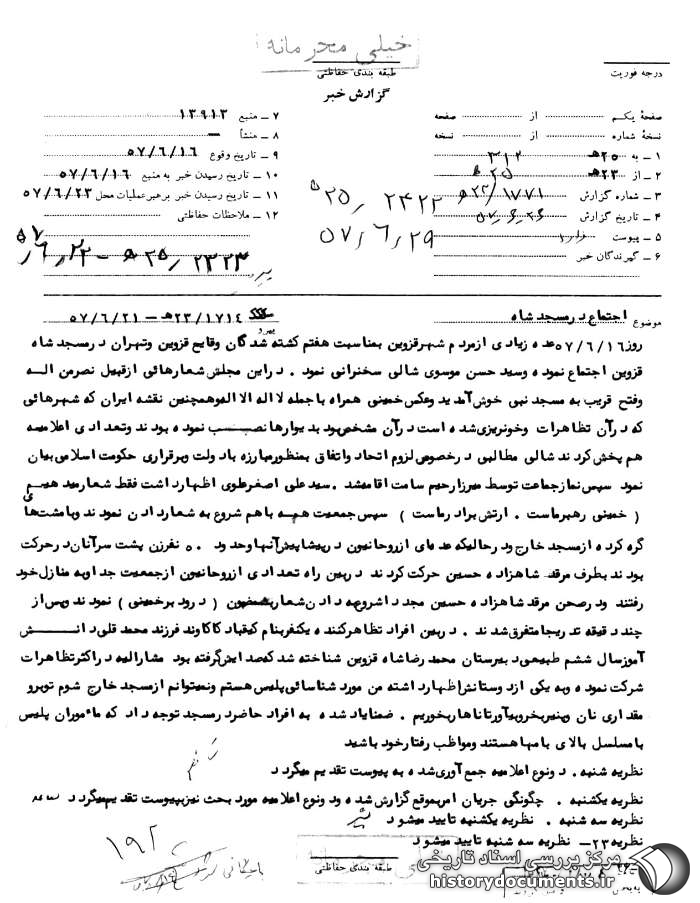 خیلی محرمانه
طبقه بندی حفاظتی
درجه فوریت
گزارش خبر
صفحه یکم از صفحه
نسخه شماره از نسخه
۱ ـ به ۲۵ هـ ۳۱۲
۲ ـ از ۲۳ هـ ۲۵ هـ
۳ ـ شماره گزارش ۲۳/۱۷۷۱ هـ
۴ ـ تاریخ گزارش ۵۷٫۶٫۲۶
۵ ـ پیوست دارد
۶ ـ گیرندگان خبر
۷ ـ منبع ۱۳۹۱۳
۸ ـ منشأ ـ
۹ ـ تاریخ وقوع ۵۷/۶/۱۶
۱۰ ـ تاریخ رسیدن خبر به منبع ۵۷/۶/۱۶
۱۱ ـ تاریخ رسیدن خبر برهبر عملیات محل ۵۷/۶/۲۳
۱۲ ـ ملاحظات حفاظتی
۲۵ هـ/ ۲۴۲۲
۵۷/۶/۲۹
۲۵ هـ/ ۲۳۲۳ ـ ۵۷/۶/۲۲
موضوع اجتماع در مسجد شاه
پیرو ۲۳/۱۷۱۴ هـ ـ ۵۷/۶/۲۱
روز ۵۷/۶/۱۶ عده زیادی از مردم شهر قزوین بمناسبت هفتم کشته شدگان وقایع قزوین و تهران در مسجد شاه
قزوین اجتماع نموده و سید حسن موسوی شالی سخنرانی نمود . در این مجلس شعارهائی از قبیل نصر من اله
و فتح قریب به مسجد نبی خوش آمدید و عکس خمینی همراه با جمله لا اله الا اله و همچنین نقشه ایران که شهرهائی
که در آن تظاهرات و خونریزی شده است در آن مشخص بود بدیوارها نصب نموده بودند و تعدادی اعلامیه
هم پخش کردند شالی مطالبی در خصوص لزوم اتحاد و اتفاق بمنظور مبارزه با دولت و برقراری حکومت اسلامی بیان
نمود سپس نماز جماعت توسط میرزا رحیم سامت اقامه شد . سید علی اصغر علوی اظهار داشت فقط شعار میدهیم
( خمینی رهبر ماست . ارتش برادر ماست ) سپس جمعیت همه با هم شروع به شعار دادن نمودند و با مشت‌های
گره کرده از مسجد خارج و در حالیکه عده‌ای از روحانیون در پیشاپیش آنها و حدود ۵۰ نفر زن پشت سر آنان در حرکت
بودند بطرف مرقد شاهزاده حسین حرکت کردند در بین راه تعدادی از روحانیون از جمعیت جدا و به منازل خود
رفتند و در صحن مرقد شاهزاده حسین مجددا شروع به دادن شعار بمضمون ( درود بر خمینی ) نمودند و پس از
چند دقیقه تدریجا متفرق شدند . در بین افراد تظاهرکننده یکنفر بنام کیقباد کاکاوند فرزند محمد قلی دانش
آموز سال ششم طبیعی دبیرستان محمد رضا شاه قزوین شناخته شد که صدایش گرفته بود مشارالیه در اکثر تظاهرات
شرکت نموده و به یکی از دوستانش اظهار داشته من مورد شناسائی پلیس هستم و نمیتوانم از مسجد خارج شوم تو برو
مقداری نان و پنیر بخر و بیاور تا ناهار بخوریم . ضمنا یاد شده به افراد حاضر در مسجد توجه داد که ماموران پلیس
با مسلسل بالای بامها هستند و مواظب رفتار خود باشید
نظریه شنبه . دو نوع اعلامیه جمع آوری شده به پیوست تقدیم میگردد
نظریه یکشنبه . چگونگی جریان امر بموقع گزارش شده و دو نوع اعلامیه مورد بحث نیز بپیوست تقدیم میگردد
نظریه سه شنبه . نظریه یکشنبه تایید میشود
نظریه ۲۳ ـ نظریه سه شنبه تایید میشود
۱۹۲
طبقه بندی حفاظتی
مرکز بررسی اسناد تاریخی
historydocuments.ir